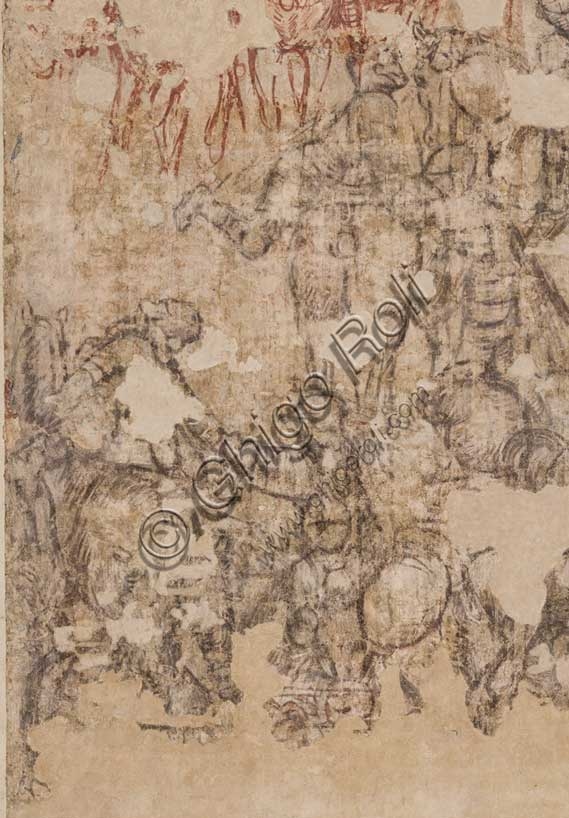 © Ghigo Roli
www.ghigoroli.com